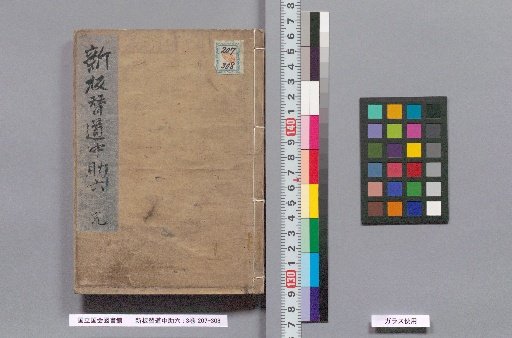 新板替道中助六 元
207
308
国立国会図書館 新板替道中助六 : 3巻 207-308
ガラス使用
8
7
6
5
4
3
2
1
140
9
8
7
6
5
4
3
2
1
130
9